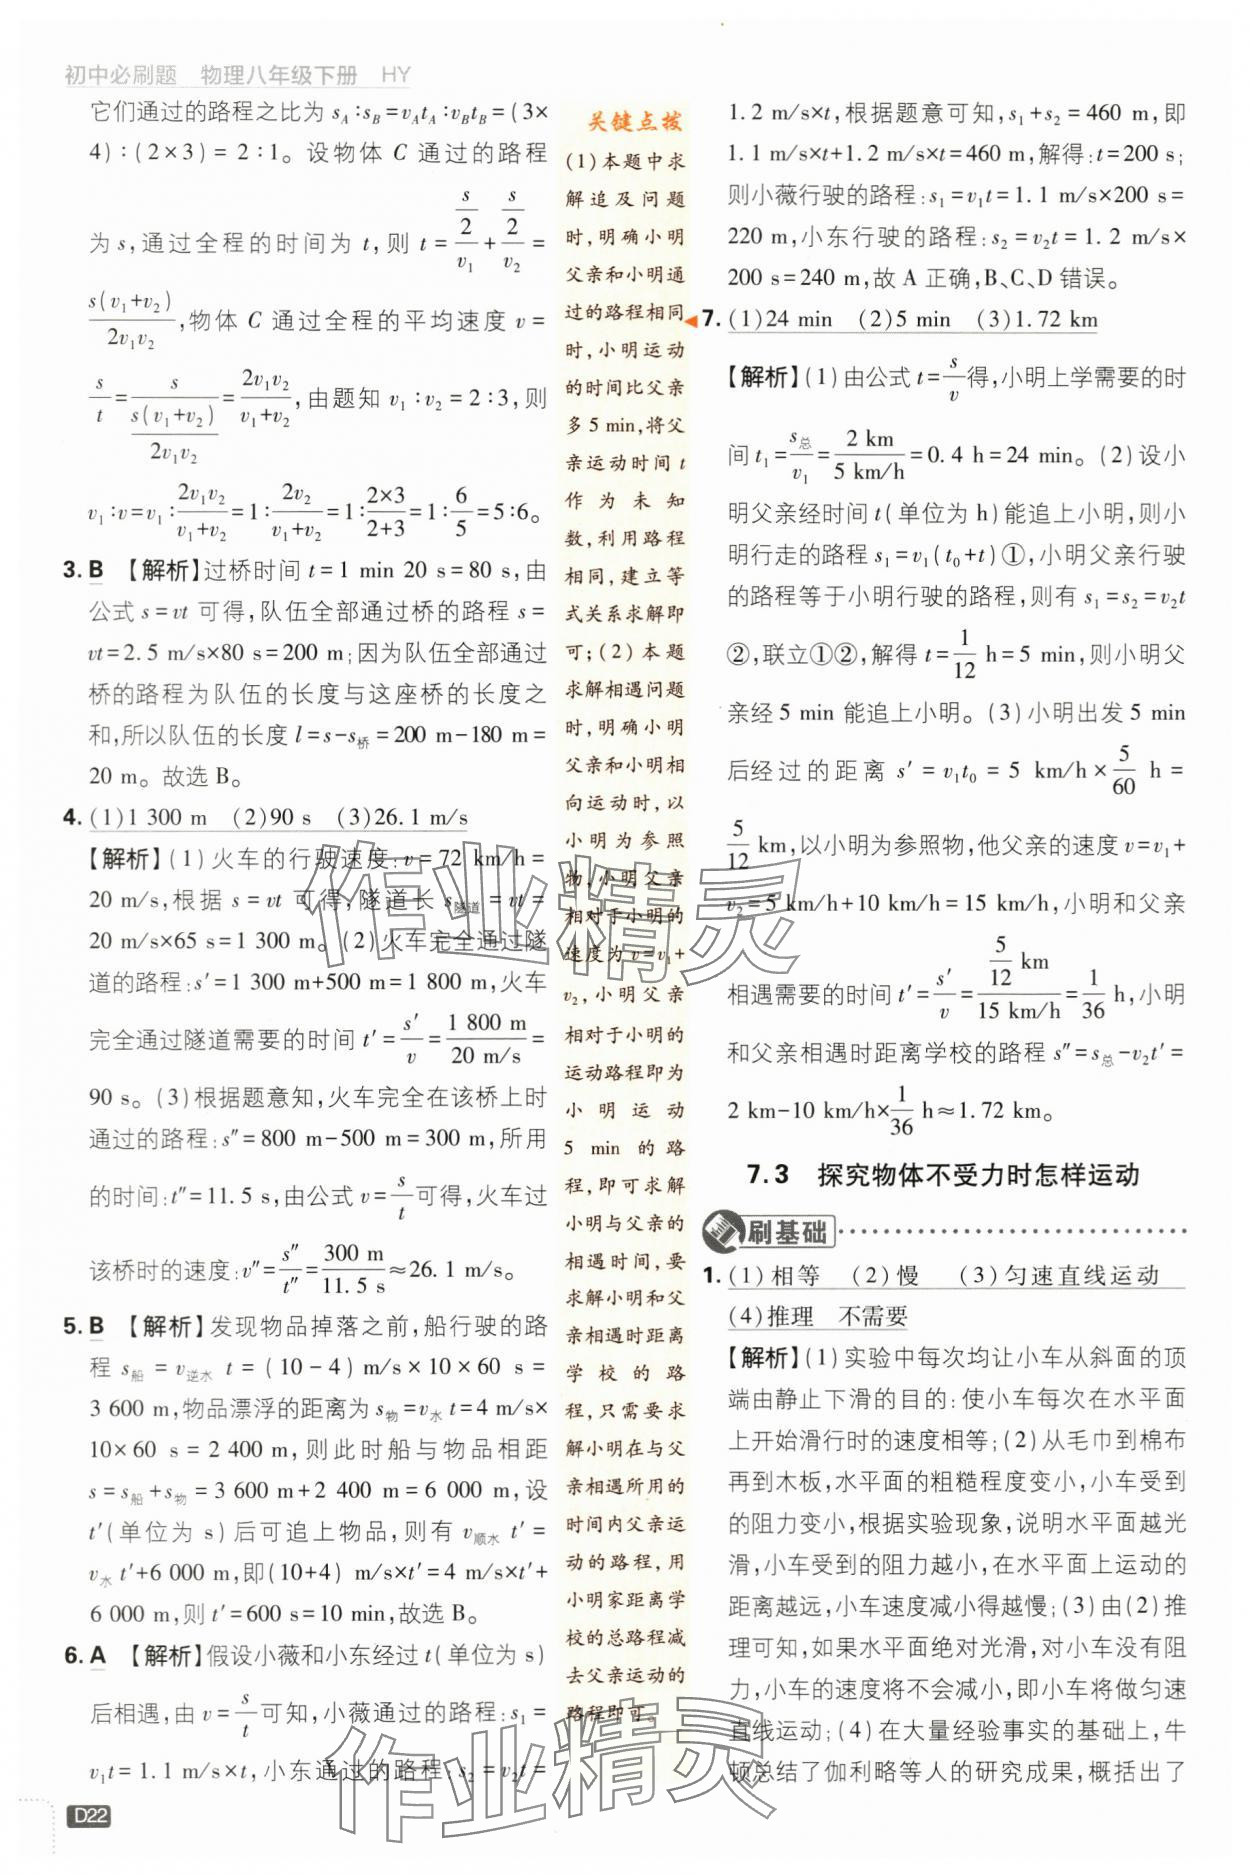 初中必刷题 物理八年级下册 HY
它们通过的路程之比为 s_A∶s_B=v_At_A∶v_Bt_B=(3×
4)∶(2×3)=2∶1。设物体 C 通过的路程
为 s,通过全程的时间为 t,则 t=(s/2)/v₁+(s/2)/v₂=
s(v₁+v₂)/2v₁v₂,物体 C 通过全程的平均速度 v=
s/t=s/[s(v₁+v₂)/2v₁v₂]=2v₁v₂/(v₁+v₂),由题知 v₁∶v₂=2∶3,则
v₁∶v=v₁∶2v₁v₂/(v₁+v₂)=1∶2v₂/(v₁+v₂)=1∶(2×3)/(2+3)=1∶6/5=5∶6。
3. B 【解析】过桥时间 t=1 min 20 s=80 s,由
公式 s=vt 可得,队伍全部通过桥的路程 s=
vt=2.5 m/s×80 s=200 m;因为队伍全部通过
桥的路程为队伍的长度与这座桥的长度之
和,所以队伍的长度 l=s-s桥=200 m-180 m=
20 m。故选 B。
4. (1)1 300 m (2)90 s (3)26.1 m/s
【解析】(1)火车的行驶速度:v=72 km/h=
20 m/s,根据 s=vt 可得,隧道长 s隧道=vt=
20 m/s×65 s=1 300 m。(2)火车完全通过隧
道的路程:s′=1 300 m+500 m=1 800 m,火车
完全通过隧道需要的时间 t′=s′/v=1 800 m/20 m/s=
90 s。(3)根据题意知,火车完全在该桥上时
通过的路程:s″=800 m-500 m=300 m,所用
的时间:t″=11.5 s,由公式 v=s/t可得,火车过
该桥时的速度:v″=s″/t″=300 m/11.5 s≈26.1 m/s。
5. B 【解析】发现物品掉落之前,船行驶的路
程 s船=v逆水 t=(10-4) m/s×10×60 s=
3 600 m,物品漂浮的距离为 s物=v水 t=4 m/s×
10×60 s=2 400 m,则此时船与物品相距
s=s船+s物=3 600 m+2 400 m=6 000 m,设
t′(单位为 s)后可追上物品,则有 v顺水 t′=
v水 t′+6 000 m,即(10+4) m/s×t′=4 m/s×t′+
6 000 m,则 t′=600 s=10 min,故选 B。
6. A 【解析】假设小薇和小东经过 t(单位为 s)
后相遇,由 v=s/t可知,小薇行驶的路程:s₁=
v₁t=1.1 m/s×t,小东通过的路程:s₂=v₂t=
D22
关键点拨
(1)本题中求
解追及问题
时,明确小明
父亲和小明通
过的路程相同
时,小明运动
的时间比父亲
多5 min,将父
亲运动时间 t
作为未知
数,利用路程
相同,建立等
式关系求解即
可;(2)本题
求解相遇问题
时,明确小明
父亲和小明相
向运动时,以
小明为参照
物,小明父亲
相对于小明的
速度为 v=v₁+
v₂,小明父亲
相对于小明的
运动路程即为
小明运动
5 min 的路
程,即可求解
小明与父亲的
相遇时间,要
求解小明和父
亲相遇时距离
学校的路
程,只需要求
解小明在与父
亲相遇所用的
时间内父亲运
动的路程,用
小明家距离学
校的总路程减
去父亲运动的
路程即可。
1.2 m/s×t,根据题意可知,s₁+s₂=460 m,即
1.1 m/s×t+1.2 m/s×t=460 m,解得:t=200 s;
则小薇行驶的路程:s₁=v₁t=1.1 m/s×200 s=
220 m,小东行驶的路程:s₂=v₂t=1.2 m/s×
200 s=240 m,故 A 正确,B、C、D 错误。
7. (1)24 min (2)5 min (3)1.72 km
【解析】(1)由公式 t=s/v得,小明上学需要的时
间 t₁=s总/v₁=2 km/5 km/h=0.4 h=24 min。(2)设小
明父亲经时间 t(单位为 h)能追上小明,则小
明行走的路程 s₁=v₁(t₀+t)①,小明父亲行驶
的路程等于小明行驶的路程,则有 s₁=s₂=v₂t
②,联立①②,解得 t=1/12 h=5 min,则小明父
亲经 5 min 能追上小明。(3)小明出发 5 min
后经过的距离 s′=v₁t₀=5 km/h×5/60 h=
5/12 km,以小明为参照物,他父亲的速度 v=v₁+
v₂=5 km/h+10 km/h=15 km/h,小明和父亲
相遇需要的时间 t′=s′/v=(5/12 km)/15 km/h=1/36 h,小明
和父亲相遇时距离学校的路程 s″=s总-v₂t′=
2 km-10 km/h×1/36 h≈1.72 km。
7.3 探究物体不受力时怎样运动
刷基础
1. (1)相等 (2)慢 (3)匀速直线运动
(4)推理 不需要
【解析】(1)实验中每次均让小车从斜面的顶
端由静止下滑的目的:使小车每次在水平面
上开始滑行时的速度相等;(2)从毛巾到棉布
再到木板,水平面的粗糙程度变小,小车受到
的阻力变小,根据实验现象,说明水平面越光
滑,小车受到的阻力越小,在水平面上运动的
距离越远,小车速度减小得越慢;(3)由(2)推
理可知,如果水平面绝对光滑,对小车没有阻
力,小车的速度将不会减小,即小车将做匀速
直线运动;(4)在大量经验事实的基础上,牛
顿总结了伽利略等人的研究成果,概括出了
作业精灵
作业精灵